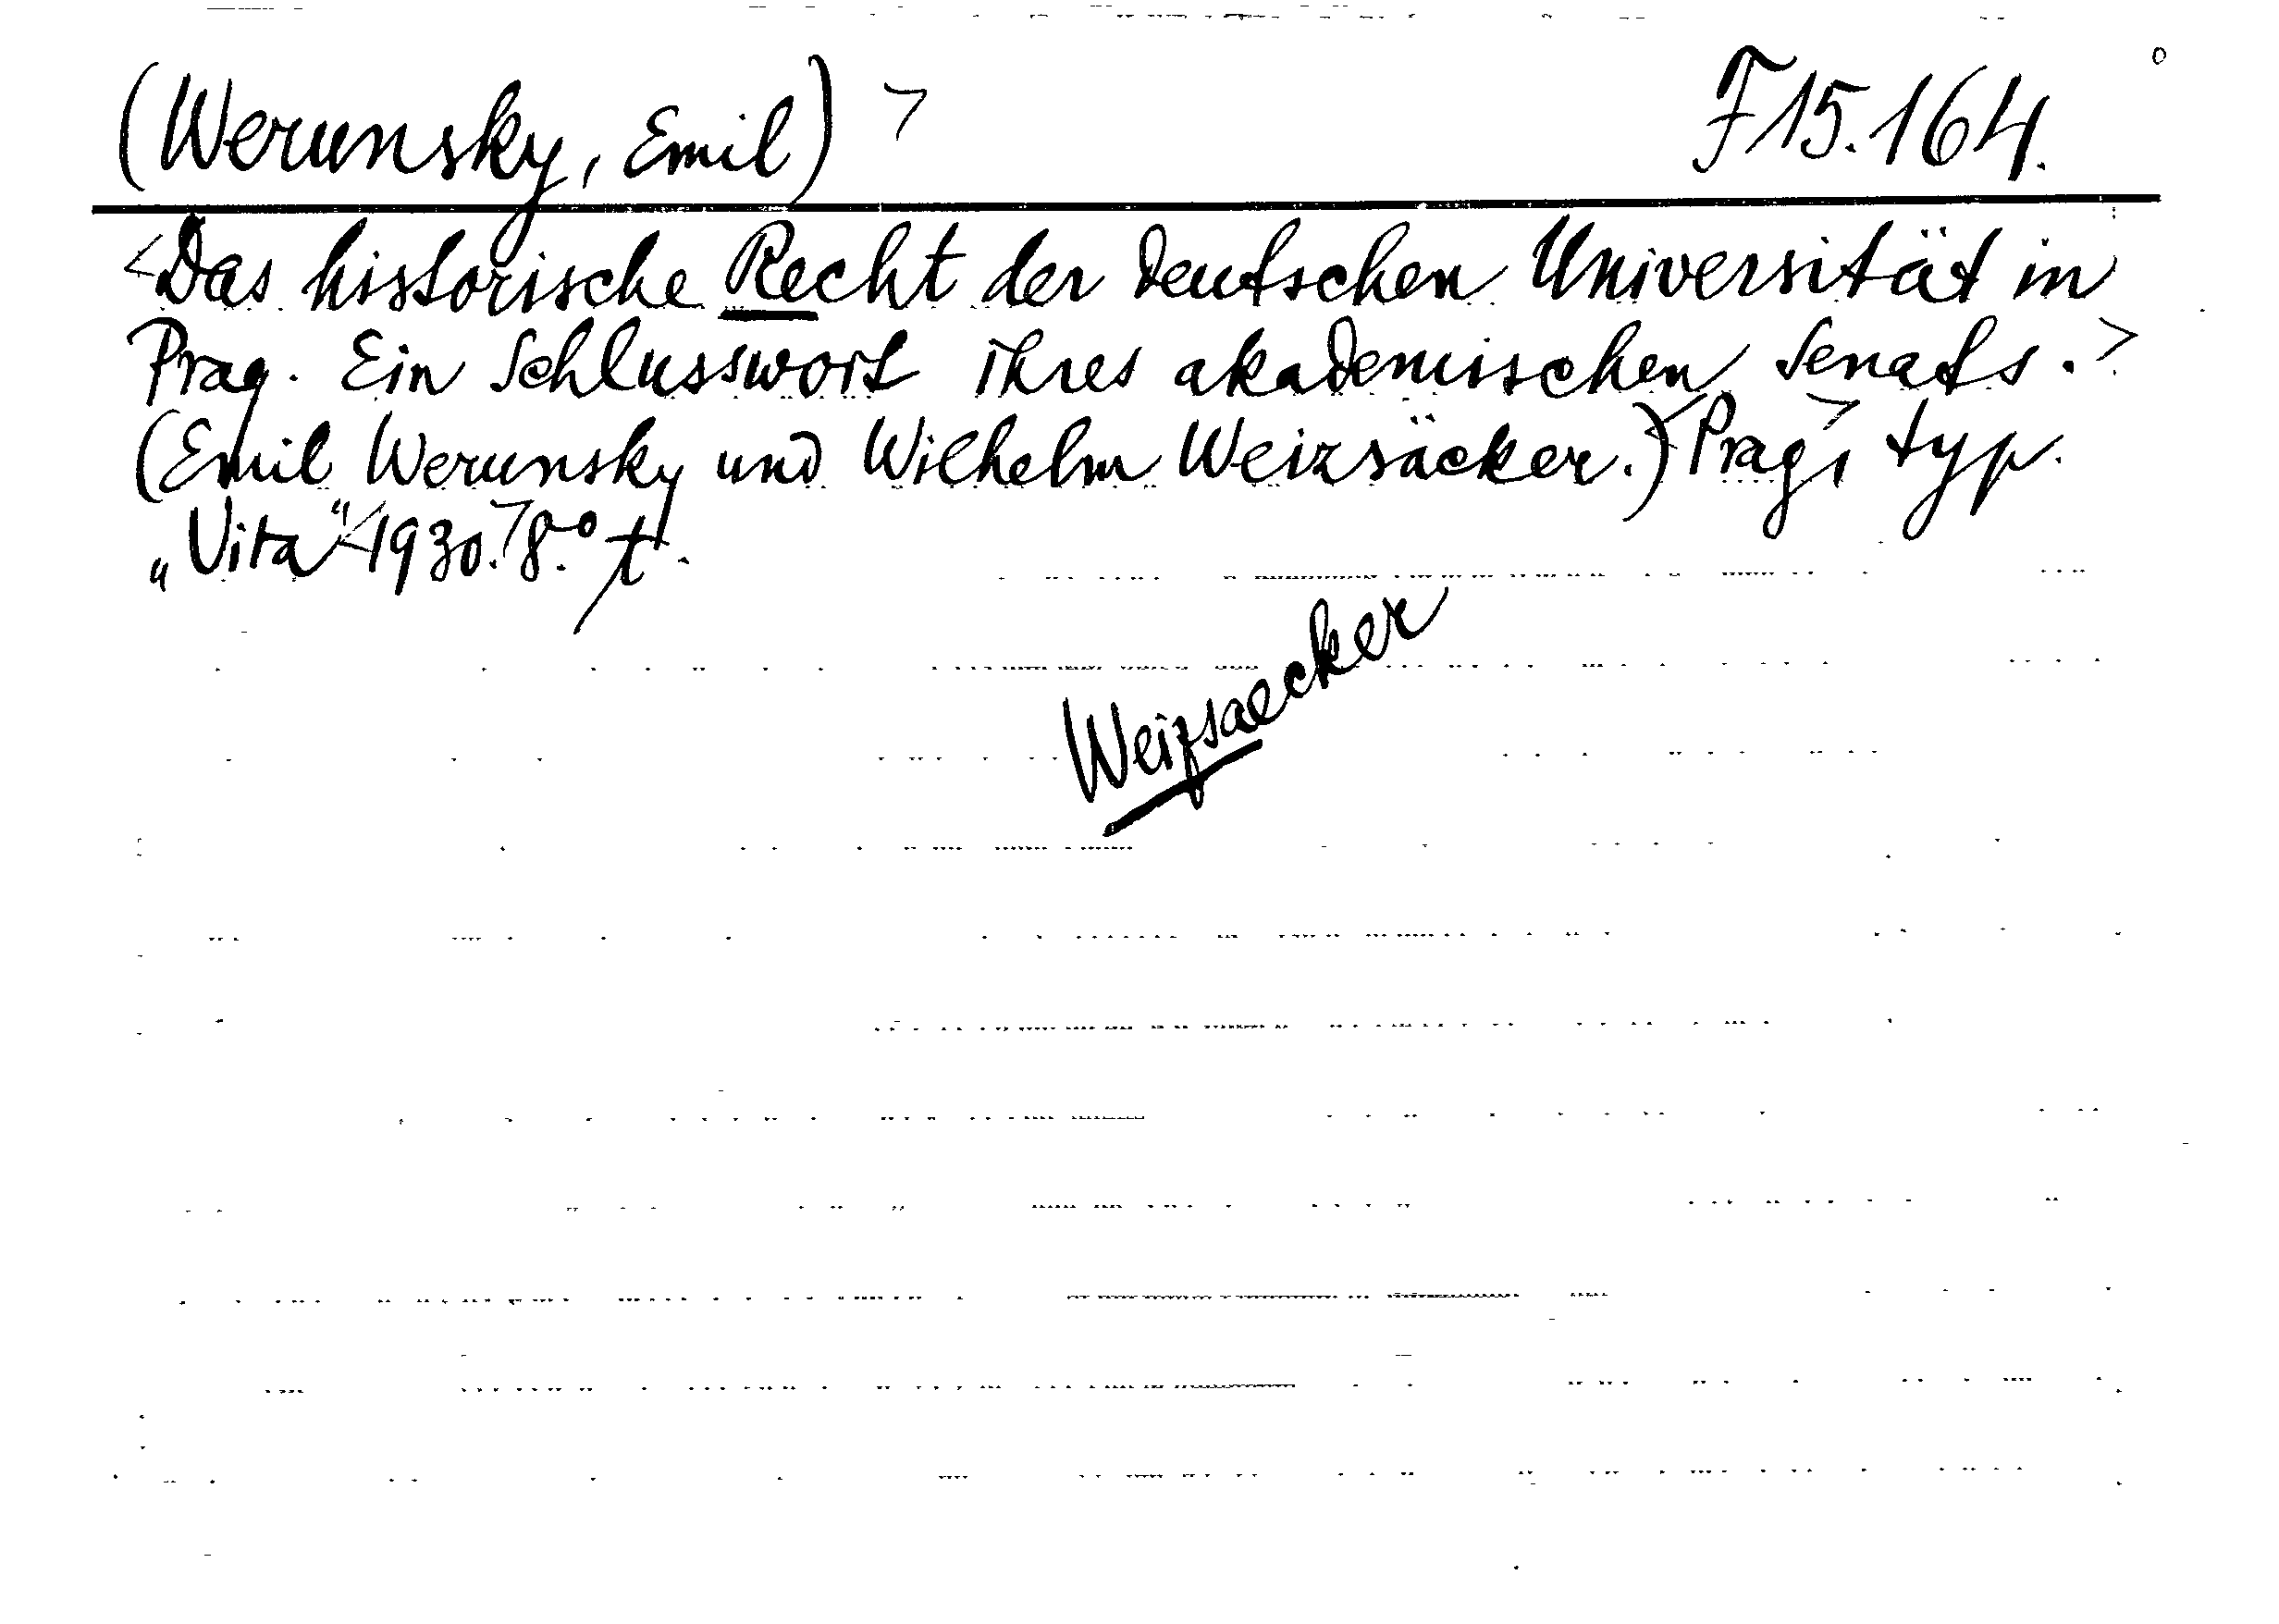 (Werunsky, Emil) > F 15.164.
<Das historische Recht der Deutschen Universität in
Prag. Ein Schlusswort ihres akademischen Senats.>
(Emil Werunsky und Wilhelm Weizsäcker.) <Prag>, typ.
„Vita“ <1930.> 8.° t.
Weizsaecker